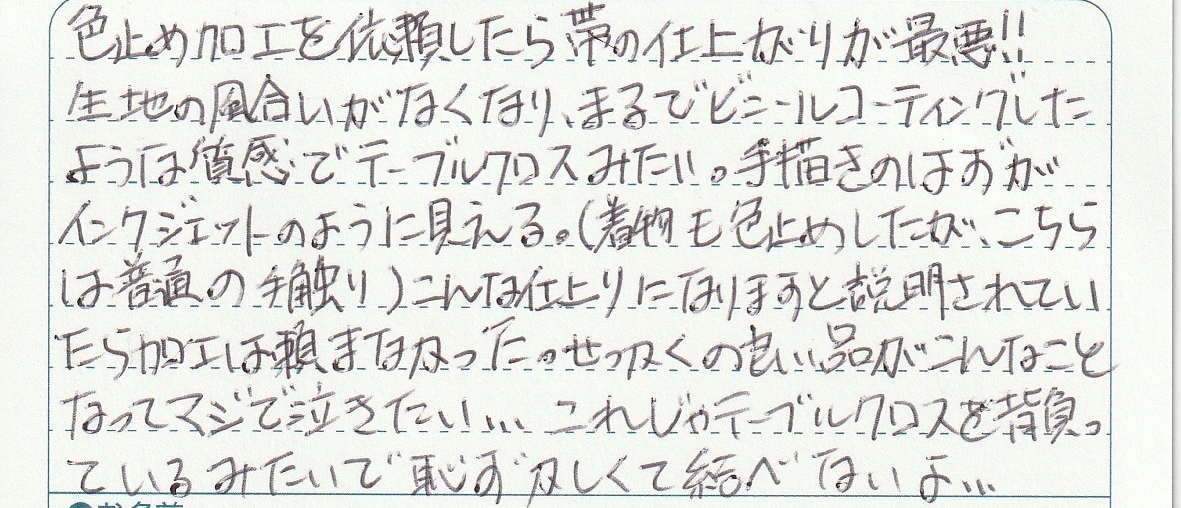 色止め加工を依頼したら帯の仕上がりが最悪!!
生地の風合いがなくなり、まるでビニールコーティングした
ような質感でテーブルクロスみたい。手描きのはずが
インクジェットのように見える。(着物も色止めしたが、こちら
は普通の手触り)こんな仕上りになりますと説明されてい
たら加工は頼まなかった。せっかくの良い品がこんなこと
なってマジで泣きたい... これじゃテーブルクロスを背負っ
ているみたいで恥ずかしくて結べないよ...